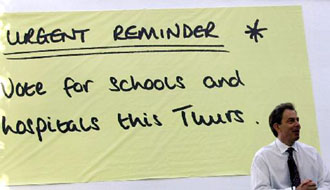 URGENT REMINDER *
Vote for schools and
hospitals this Thurs.